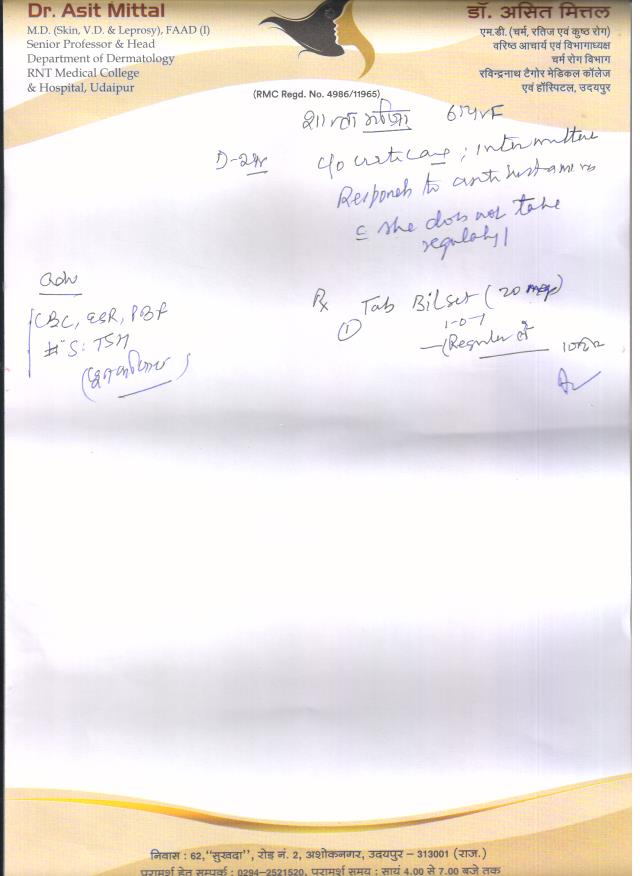 Dr. Asit Mittal
M.D. (Skin, V.D. & Leprosy), FAAD (I)
Senior Professor & Head
Department of Dermatology
RNT Medical College
& Hospital, Udaipur
डॉ. असित मित्तल
एम.डी. (चर्म, रतिज एवं कुष्ठ रोग)
वरिष्ठ आचार्य एवं विभागाध्यक्ष
चर्म रोग विभाग
रविन्द्रनाथ टैगोर मेडिकल कॉलेज
एवं हॉस्पिटल, उदयपुर
(RMC Regd. No. 4986/11965)
c/o urticaria ; intermittent
Responds to antihistamines
she does not take
regularly
adv
CBC, ESR, PBF
S. TSH
Rx
① Tab Bilset (20 mg)
1-0-1
(Regular
निवास : 62,"सुखदा", रोड़ नं. 2, अशोकनगर, उदयपुर - 313001 (राज.)
परामर्श हेतु सम्पर्क : 0294-2521520, परामर्श समय : सायं 4.00 से 7.00 बजे तक